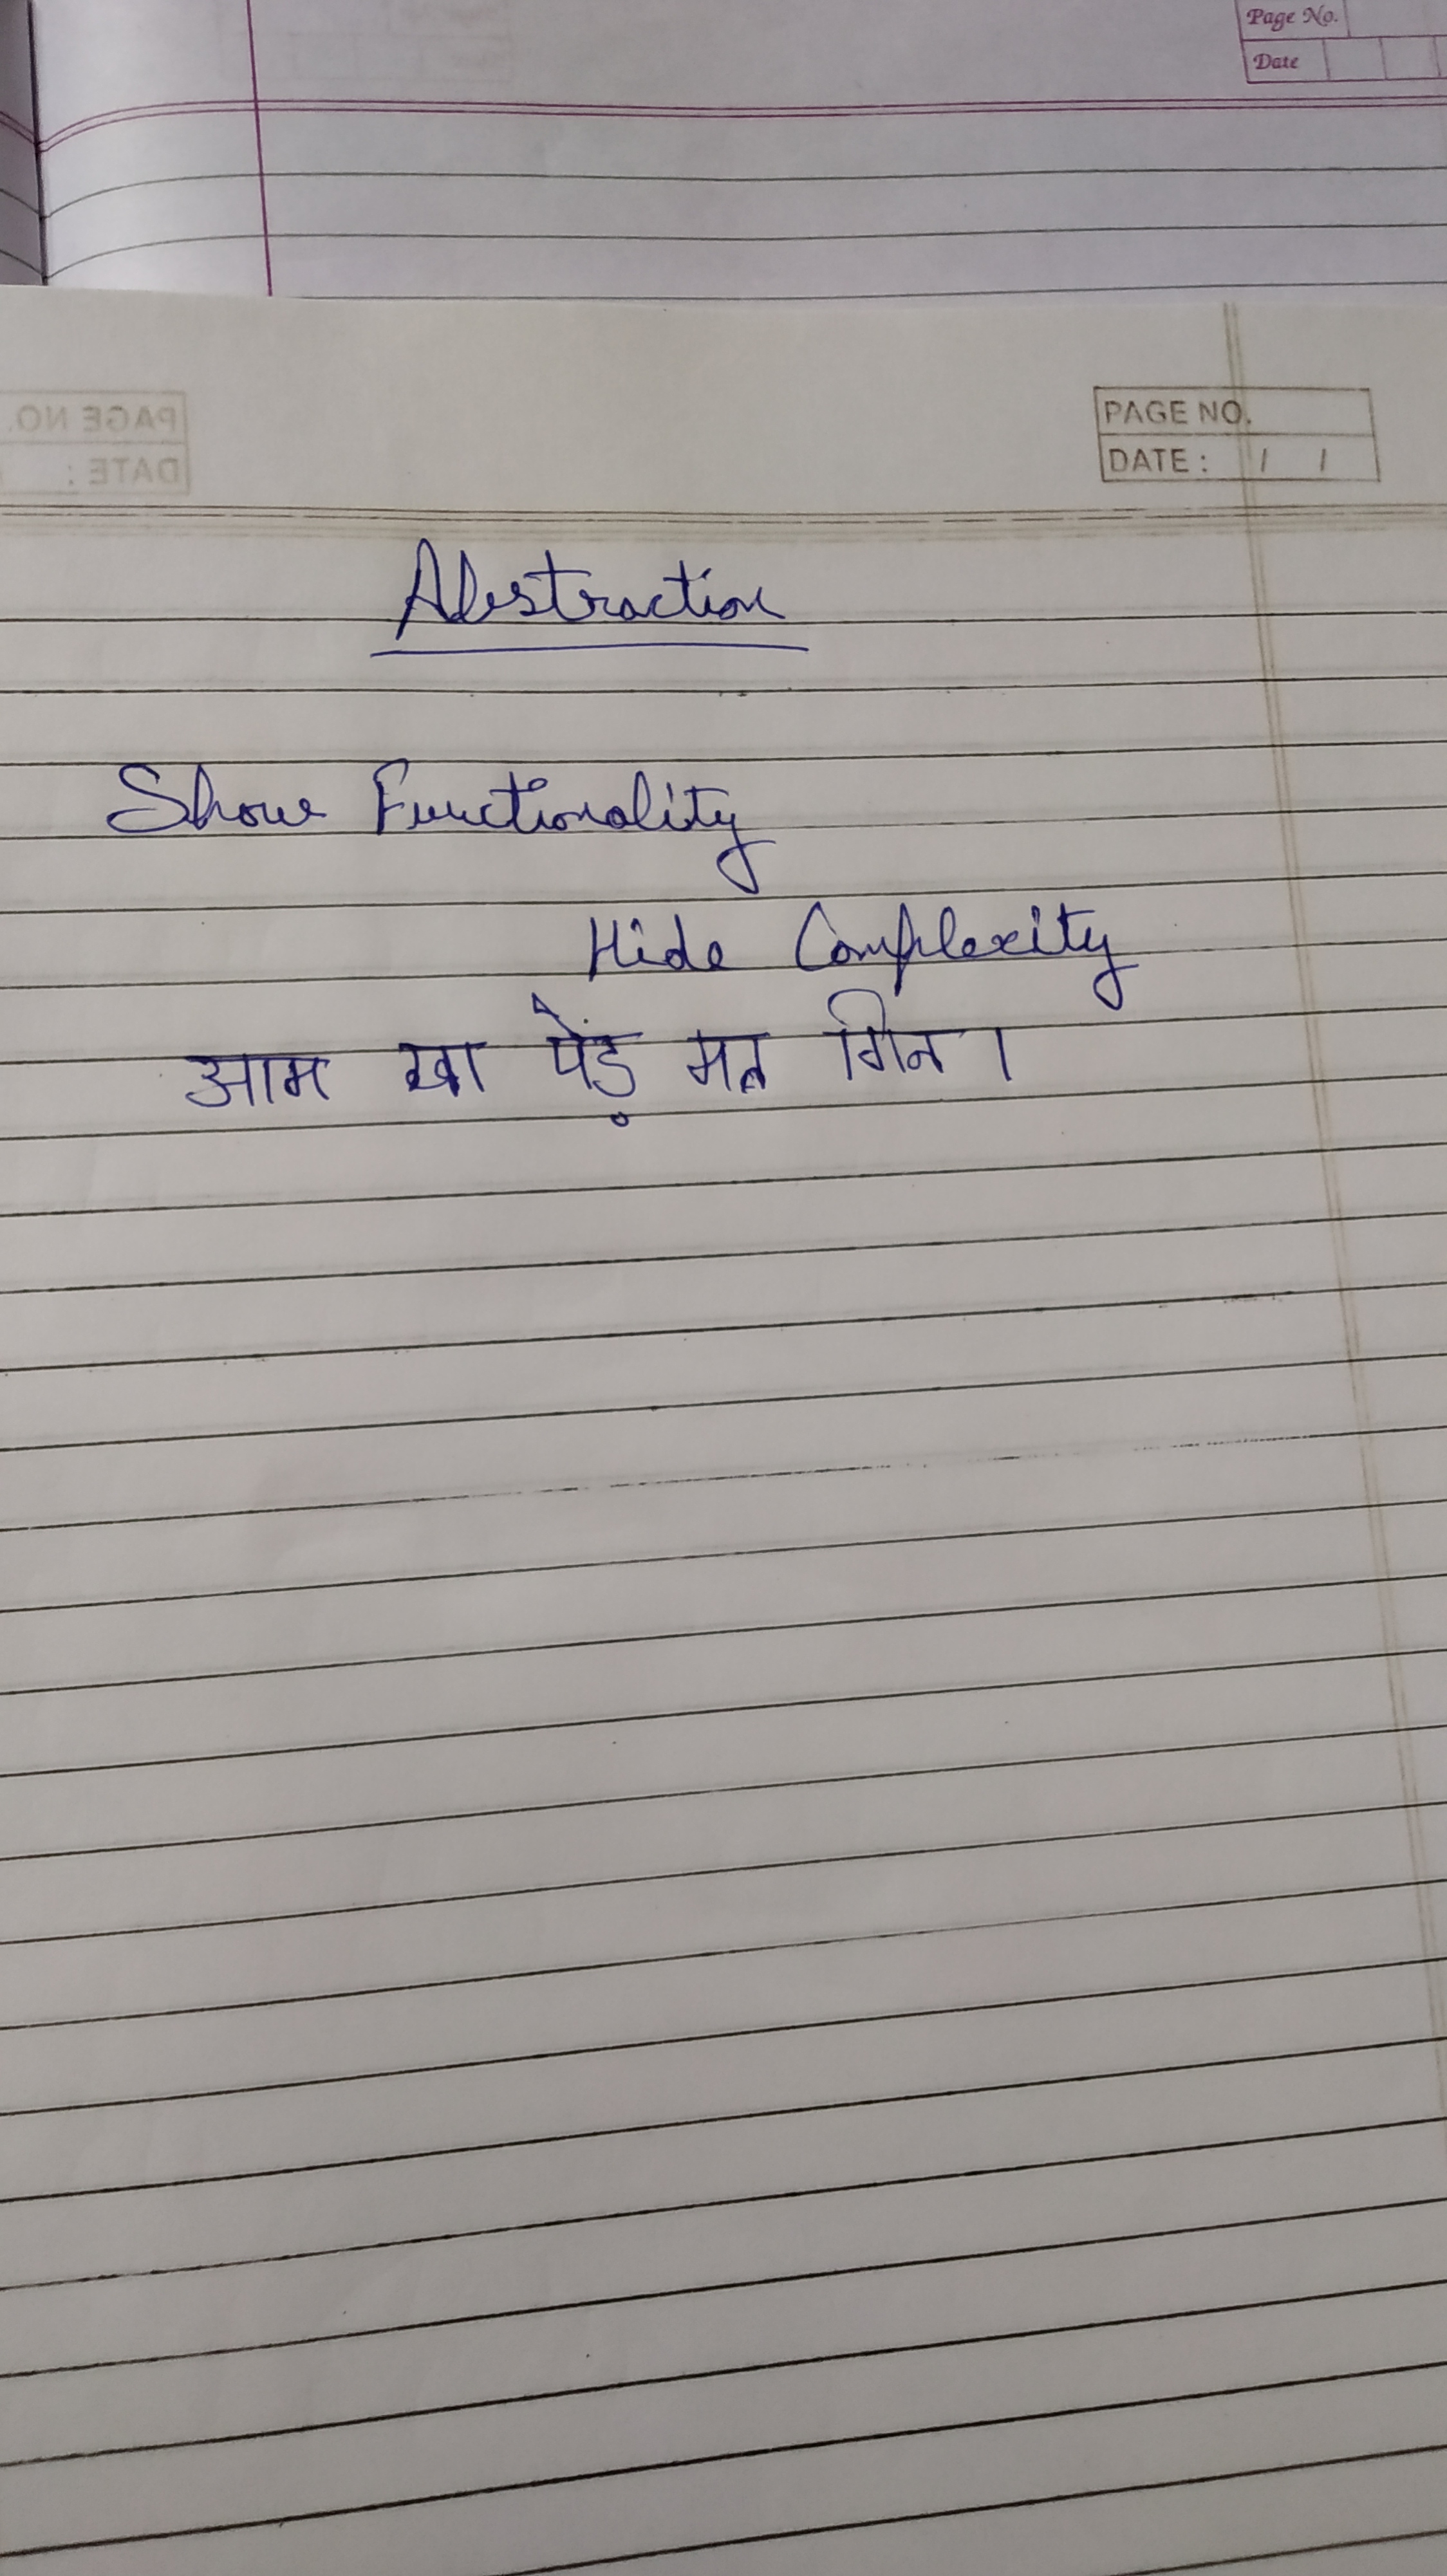 Page No.
Date
PAGE NO.
DATE : / /
PAGE NO.
DATE :
Abstraction
Show Functionality
Hide Complexity
आम खा पेड़ मत गिन।